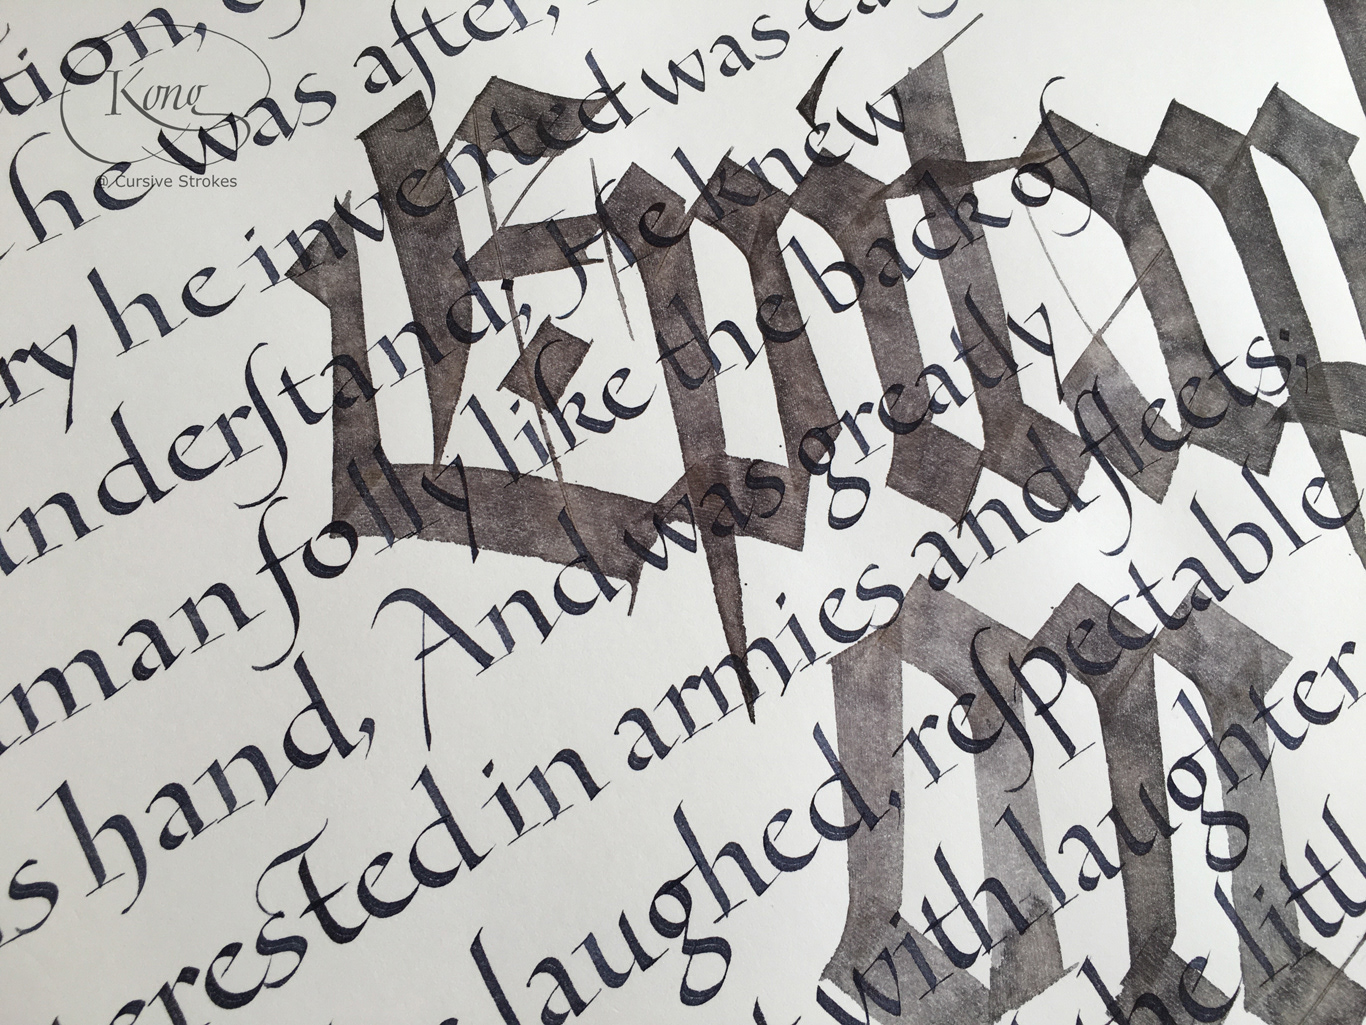 Kong
@ Cursive Strokes
he was after,
ry he invented was
underſtand; He knew
man folly like the back of
s hand, And was greatly
ereſted in armies and fleets;
laughed, reſpectable
with laughter
the littl
Epitap
on